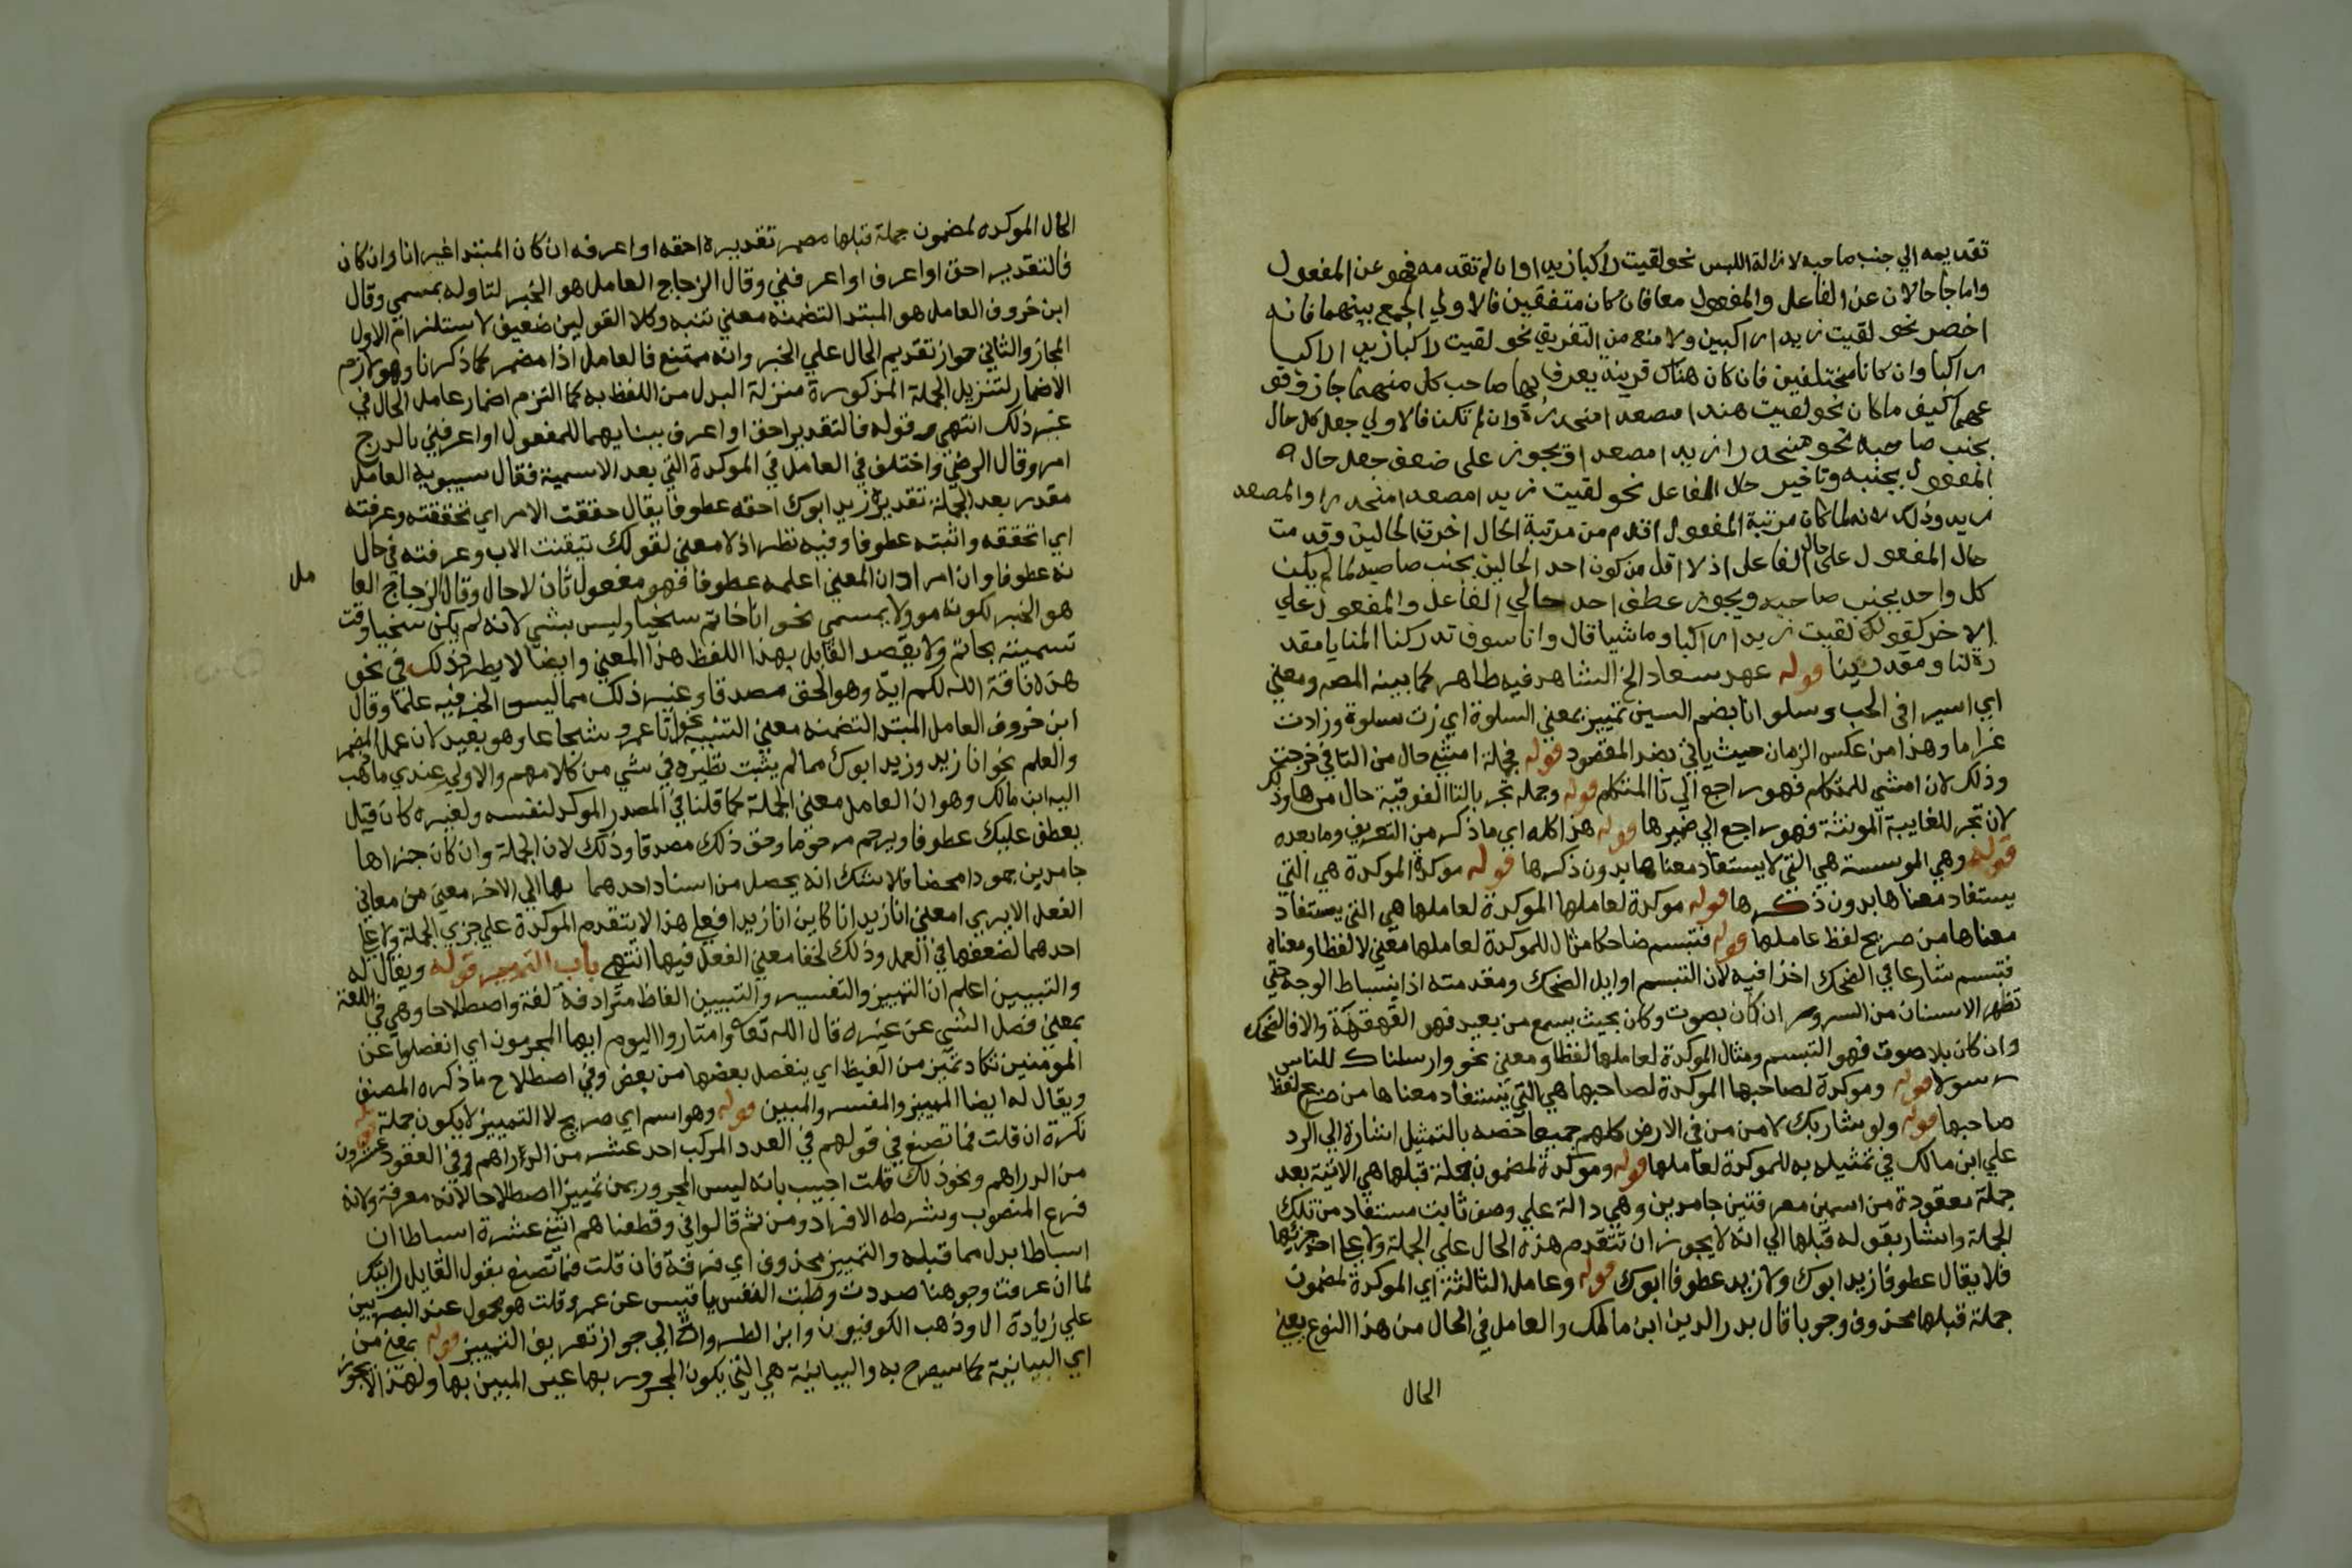 تقديمه الي جنب صاحبه لازالة اللبس نحو لقيت راكبا زيدا وان لم تقدمه فهو عن المفعول
واما جا حالان عن الفاعل والمفعول معا فان كان متفقين فالاولي الجمع بينهما فانه
اخصر نحو لقيت زيدا راكبين ولا منع من التفريق نحو لقيت راكبا زيدا راكبا
راكبا وان كانا مختلفين فان كان هناك قرينة يعرف بها صاحب كل منهما جاز وقو
عهما كيف ما كان نحو لقيت هندا مصعدا منحدرة وان لم تكن فالاولي جعل كل حال
بجنب صاحبه نحو منحدرا زيدا مصعدا ويجوز على ضعف جعل حال
المفعول بجنبه وتاخير حال الفاعل نحو لقيت زيدا مصعدا منحدرا والمصعد
زيد وذلك لانه لما كان مرتبة المفعول اقدم من مرتبة الحال اخرت الحالين وقدمت
حال المفعول على حال الفاعل اذ لا اقل من كون احد الحالين بجنب صاحبه لما لم يكن
كل واحد بجنب صاحبه ويجوز عطف احد حالي الفاعل والمفعول علي
الاخر كقولك لقيت زيدا راكبا وماشيا قال وانا سوف تدركنا المنايا مقد
رة لنا ومقدرينا قوله عهد سعاد الخ الشاهد فيه ظاهر كما بينه المصـ ومعني
اي اسير افي الحب وسلوانا بضم السين تمييز بمعني السلوة اي زت سلوة وزادت
غراما وهذا من عكس الزمان حيث ياتي بضد المقصود قوله فجملة امشي حال من التا في خرجت
وذلك لان امشي للمتكلم فهو راجع الي تا المتكلم قوله وجملة تجر بالتا الفوقية حال من ها وذلك
لان تجر للغايبة المونثة فهو راجع الي ضميرها قوله هذا كله اي ما ذكر من التعريف وما بعده
قوله وهي الموسسة هي التي لا يستفاد معناها بدون ذكرها قوله موكدة الموكدة هي التي
يستفاد معناها بدون ذكرها قوله موكدة لعاملها الموكدة لعاملها هي التي يستفاد
معناها من صريح لفظ عاملها قوله فتبسم ضاحكا مثال للموكدة لعاملها معني لا لفظا ومعناه
فتبسم شارعا في الضحك اخذا فيه لان التبسم اوايل الضحك ومقدمته اذ انبساط الوجه حتي
تظهر الاسنان من السرور ان كان بصوت وكان بحيث يسمع من بعيد فهو القهقهة والا فالضحك
وان كان بلا صوت فهو التبسم ومثال الموكدة لعاملها لفظا ومعني نحو وارسلناك للناس
رسولا قوله وموكدة لصاحبها الموكدة لصاحبها هي التي يستفاد معناها من صريح لفظ
صاحبها قوله ولو شا ربك لامن من في الارض كلهم جميعا خصه بالتمثيل اشارة الي الرد
علي ابن مالك في تمثيله به للموكدة لعاملها قوله وموكدة لمضمون جملة قبلها هي الاتية بعد
جملة معقودة من اسمين معرفتين جامدين وهي دالة علي وصف ثابت مستفاد من تلك
الجملة واشار بقوله قبلها الي انه لا يجوز ان تتقدم هذه الحال علي الجملة ولا علي احد جزئيها
فلا يقال عطوفا زيد ابوك ولا زيد عطوفا ابوك قوله وعامل الثالثة اي الموكدة لمضمون
جملة قبلها محذوف وجوبا قال بدر الدين ابن مالك والعامل في الحال من هذا النوع يعني
الحال
الحال الموكدة لمضمون جملة قبلها مضمر تقديره احقه او اعرفه ان كان المبتدا غير انا وان كان
فالتقدير احق او اعرف او اعرفني وقال الزجاج العامل هو الخبر لتاوله بمسمي وقال
ابن خروف العامل هو المبتدا لتضمنه معني تنبه وكلا القولين ضعيف لاستلزام الاول
المجاز والثاني جواز تقديم الحال علي الخبر وانه ممتنع فالعامل اذا مضمر كما ذكرنا وهو لازم
الاضمار لتنزيل الجملة المذكورة منزلة البدل من اللفظ به كما التزم اضمار عامل الحال في
غير ذلك انتهي وقوله فالتقدير احق او اعرف ببنايهما للمفعول او اعرفني بالدرج
امر وقال الرضي واختلف في العامل في الموكدة التي بعد الاسمية فقال سيبويه العامل
مقدر بعد الجملة تقديره زيد ابوك احقه عطوفا يقال حققت الامر اي تحققته وعرفته
اي اتحققه واثبته عطوفا وفيه نظر اذ لا معني لقولك تيقنت الاب وعرفته في حال
نه عطوفا وان اراد ان المعني اعلمه عطوفا فهو مفعول ثان لا حال وقال الزجاج العا
مل
هو الخبر لكونه موولا بمسمي نحو انا حاتم سخيا وليس بشي لانه لم يكن سخيا وقت
تسميته بحاتم ولا يقصد القايل بهذا اللفظ هذا المعني وايضا لا يطرد ذلك في نحو
هذه ناقة الله لكم اية وهو الحق مصدقا وغير ذلك مما ليس الخبر فيه علما وقال
ابن خروف العامل المبتدا لتضمنه معني التنبيه نحو انا عمرو شجاعا وهو بعيد لان عمل المضمر
والعلم نحو انا زيد وزيد ابوك مما لم يثبت نظيره في شي من كلامهم والاولي عندي ما ذهب
اليه ابن مالك وهو ان العامل معني الجملة كما قلنا في المصدر الموكد لنفسه ولغيره كان قيل
يعطف عليك عطوفا ويرحم مرحوما وحق ذلك مصدقا وذلك لان الجملة وان كان جزاها
جامدين جمودا محضا فلا شك انه يحصل من اسناد احدهما الي الاخر معني من معاني
الفعل الا يري ا معني انا زيد انا كاين انا زيد فعلي هذا لا يتقدم الموكدة علي جزي الجملة ولا علي
احدهما لضعفها في العمل وذلك لخفا معني الفعل فيها انتهي باب التمييز قوله ويقال له
والتبيين اعلم ان التمييز والتفسير والتبيين الفاظ مترادفة لغة واصطلاحا وهي في اللغة
بمعني فصل الشي عن غيره قال الله تعالى وامتازوا اليوم ايها المجرمون اي انفصلوا عن
المومنين تكاد تميز من الغيظ اي ينفصل بعضها من بعض وفي اصطلاح ما ذكره المصنف
ويقال له ايضا المميز والمفسر والمبين قوله وهو اسم اي صريح لا التمييز لا يكون جملة قوله
نكرة ان قلت فما تصنع في قولهم في العدد المركب احد عشر من الدراهم وفي العقود عشرون
من الدراهم ونحو ذلك قلت اجيب بانه ليس المجرور بمن تمييزا اصطلاحا لانه معرفة ولانه
فرع المنصوب وشرطه الافراد ومن ثم قالوا في وقطعناهم اثني عشرة اسباطا ان
اسباطا بدل مما قبله والتمييز محذوف اي فرقة فان قلت فما تصنع بقول القايل رايتك
لما ان عرفت وجوهنا صددت وطبت النفس يا قيس عن عمرو قلت هو محمول عند البصريين
علي زيادة ال وذهب الكوفيون وابن الطراوة الي جواز تعريف التمييز قوله بمعني من
اي البيانية كما سيصرح به والبيانية هي التي يكون المجرور بها عين المبين بها ولهذا لا يجوز